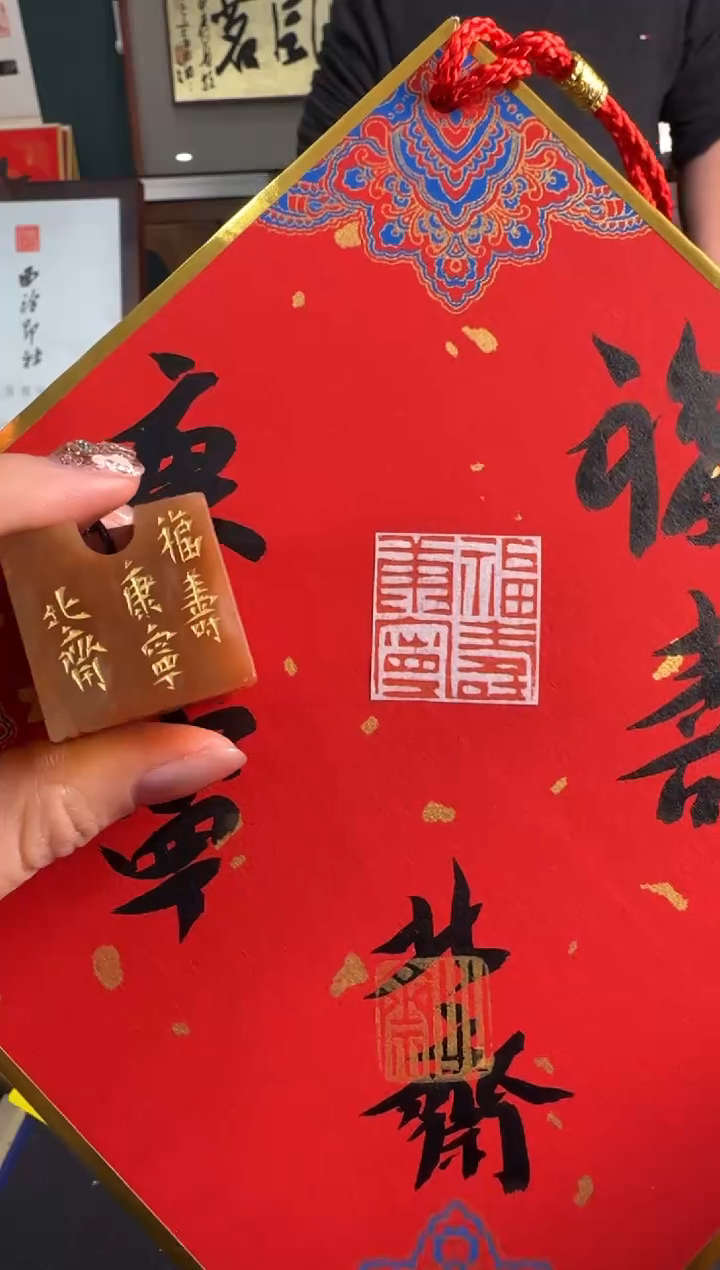 福壽
康寧
北齋
福壽
康寧
北齋
福壽
康寧
西泠印社
茗